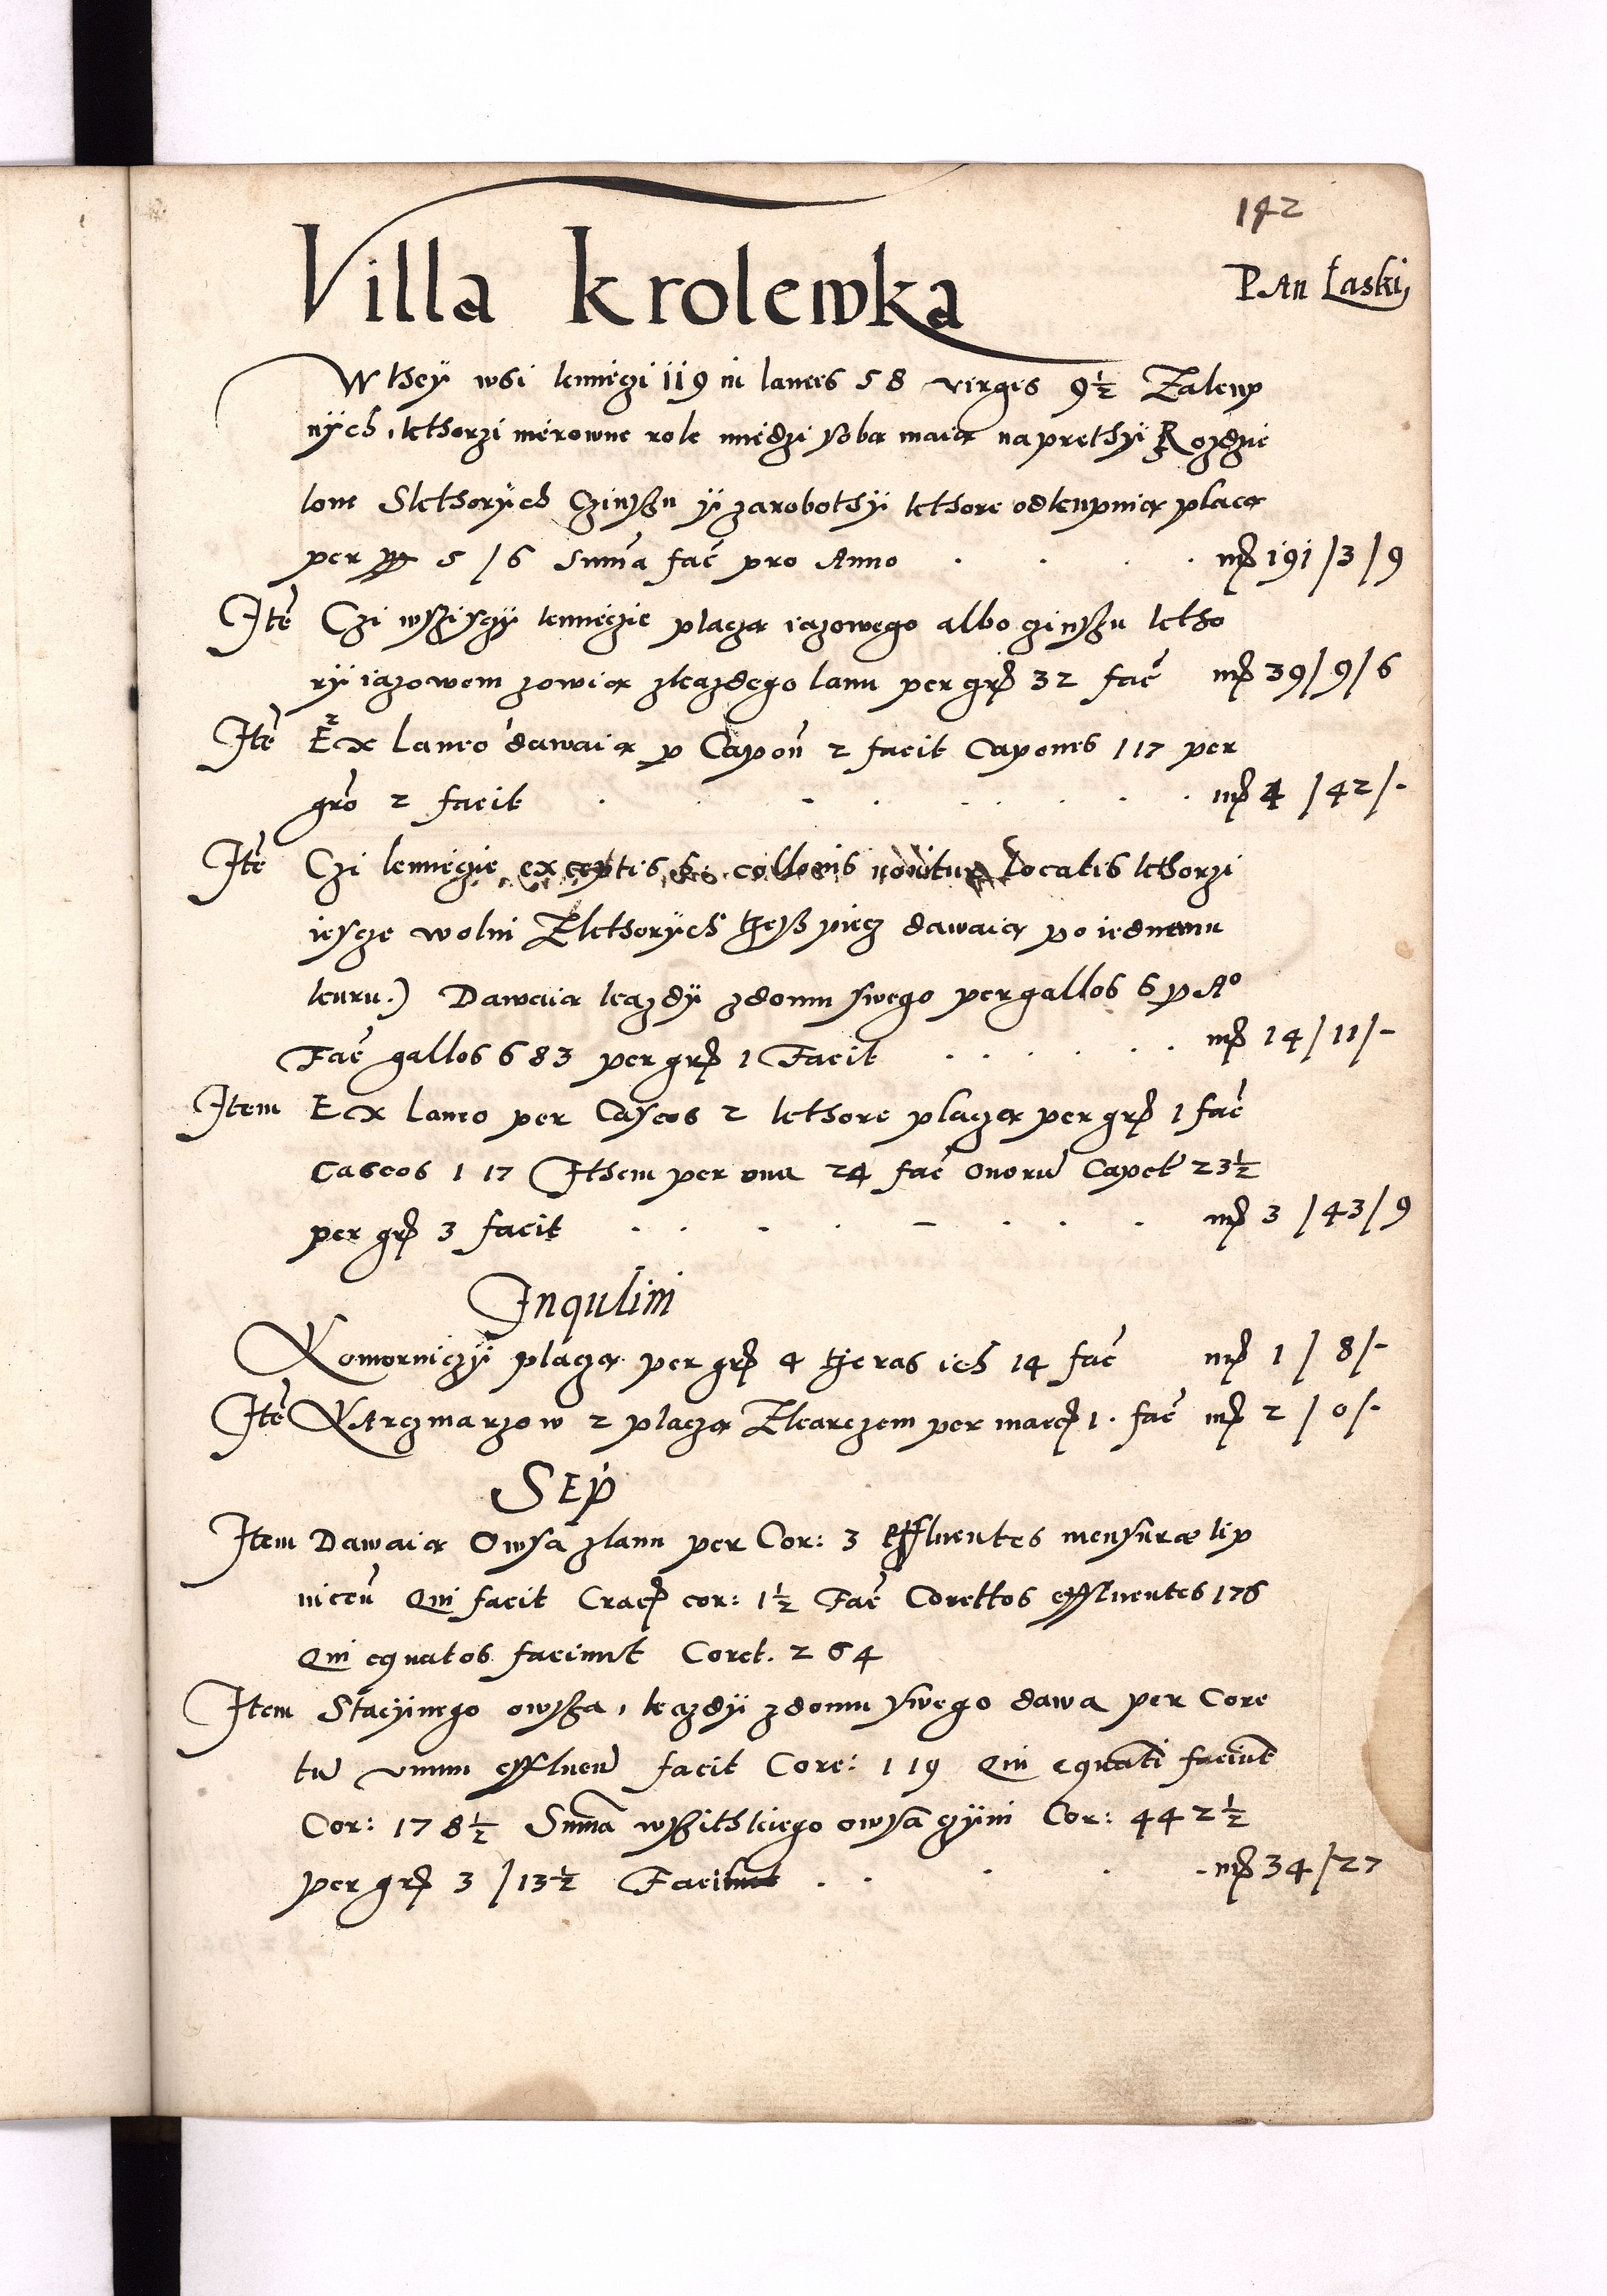 142
Villa Krolewka
P. An Łaski
W they wsi kmiéczi 119 in laneis 58 virgis 9½ Zakup
nÿch, kthorzi nierowne role miédzi soba maią na prethÿ Rozdzie
lone Skthorÿch Czinszu ÿ zarobothÿ kthore odkupuią placą
per 5/6 Suma fac pro Anno . . . . mr 191/3/9
Ite Czi wszisczÿ kmieczie placzą iazowego albo czinszu ktho
rÿ iazowem zowią zkazdego lanu per gr 32 fac mr 39/9/6
Ite Ex laneo dawaią p Capon 2 facit Capones 117 per
gro 2 facit . . . . mr 4/42/-
Ite Czi kmiéczie exceptis collonis noviter Locatis kthorzi
iescze wolni Zkthorÿch thesz piecz dawaią po iednemu
kuru.) Dawaią kazdÿ zdomu swego per gallos 6 p Aº
Fac gallos 683 per gr 1 Facit . . . . mr 14/11/-
Item Ex laneo per Caseos 2 kthore placzą per gr 1 fac
Caseos 117 Ithem per ova 24 fac Ovoru Capet 23½
per gr 3 facit . . . . mr 3/43/9
Inqulini
Komorniczÿ placzą per gr 4 theras ich 14 fac mr 1/8/-
Ite KArczmarzow 2 placzą Zkarczem per marc 1. fac mr 2/0/-
SEp
Item Dawaią Owsa zlanu per Cor: 3 effluentes mensuræ lip
niceu Qui facit Crac cor: 1½ Fac Corettos effluentes 176
Qui equatos faciunt Coret. 264
Item Stacÿinego owsza, kazdÿ zdomu swego dawa per Core
tu unum effluen facit Core: 119 Qui equati faciunt
Cor: 178½ Suma wszithkiego owsa czÿni Cor: 442½
per gr 3/13½ Facit . . . . mr 34/27